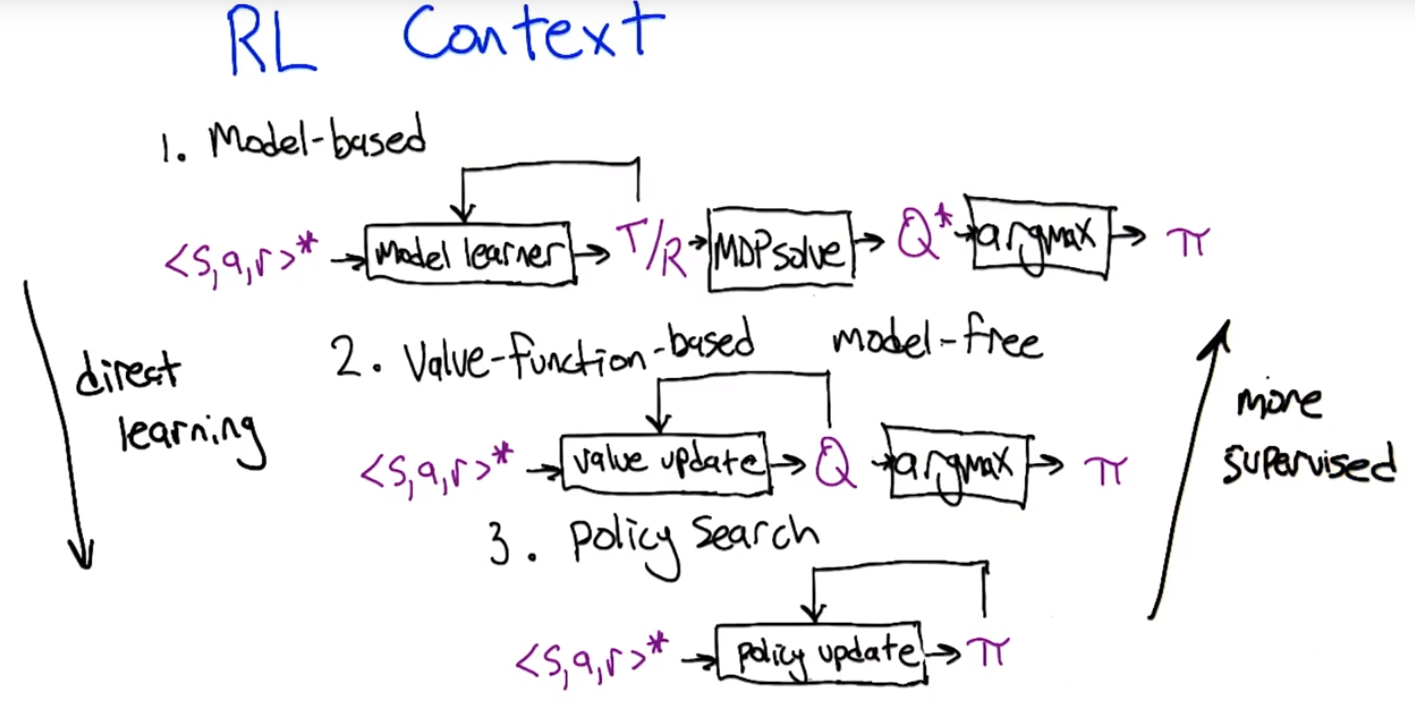 RL Context
1. Model-based
<s,a,r>* model learner T/R MDP solve Q* argmax π
direct learning
2. Value-function-based model-free
more supervised
<s,a,r>* value update Q argmax π
3. Policy Search
<s,a,r>* policy update π